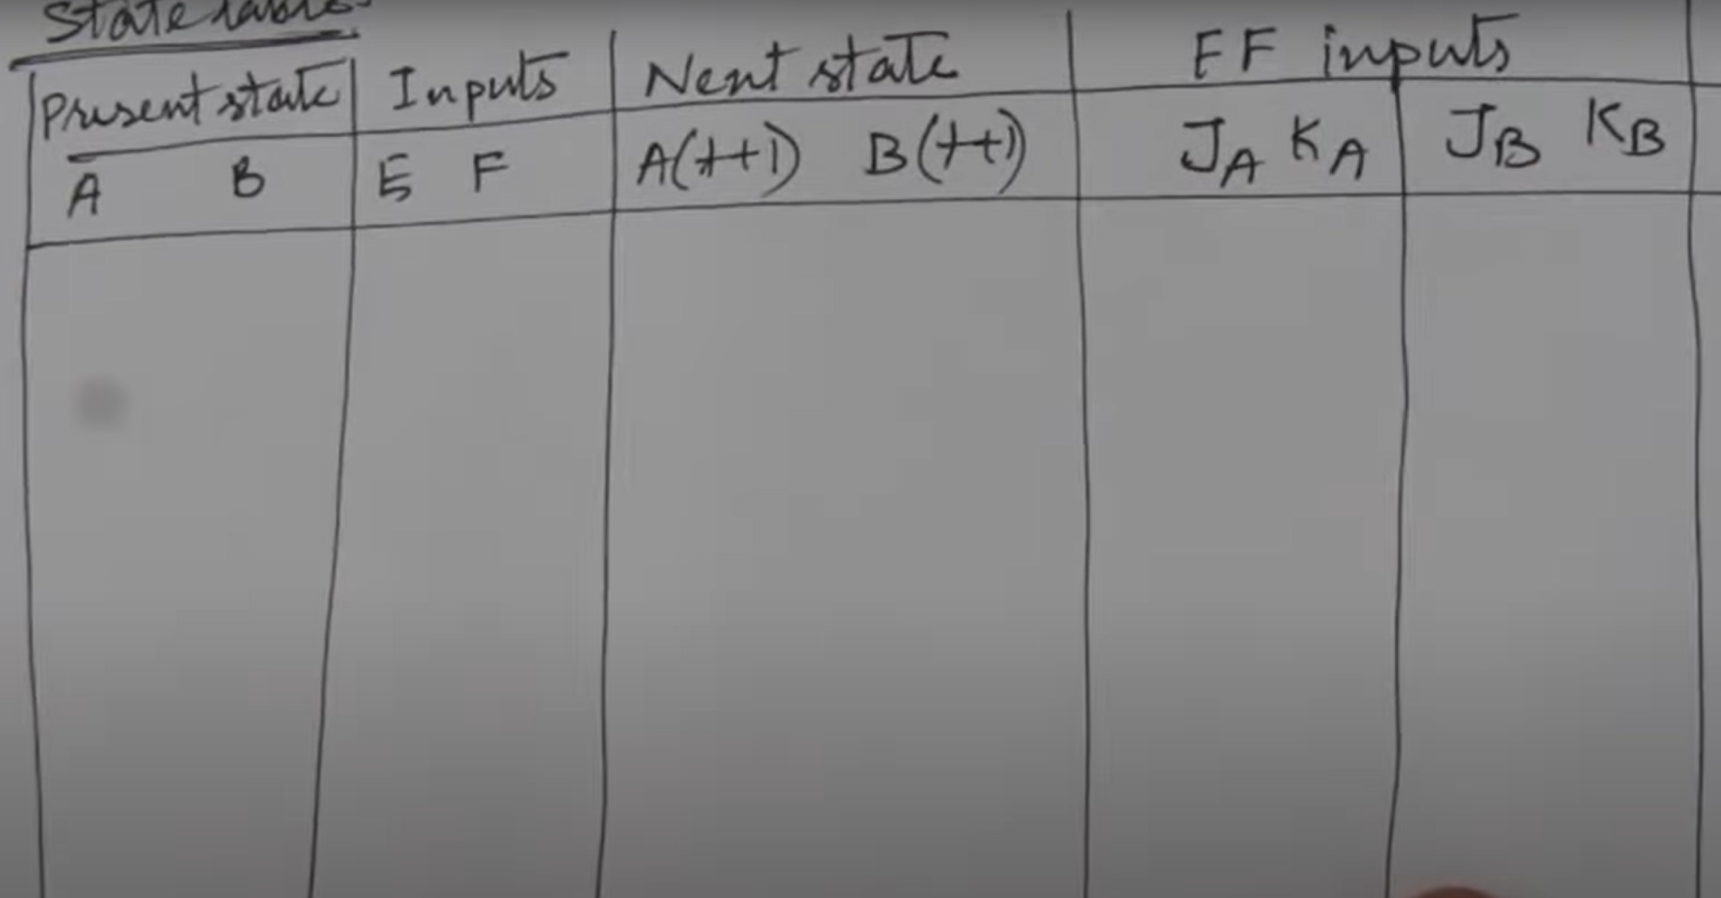 State table
Present state Inputs Next state FF inputs
A B E F A(t+1) B(t+1) JA KA JB KB